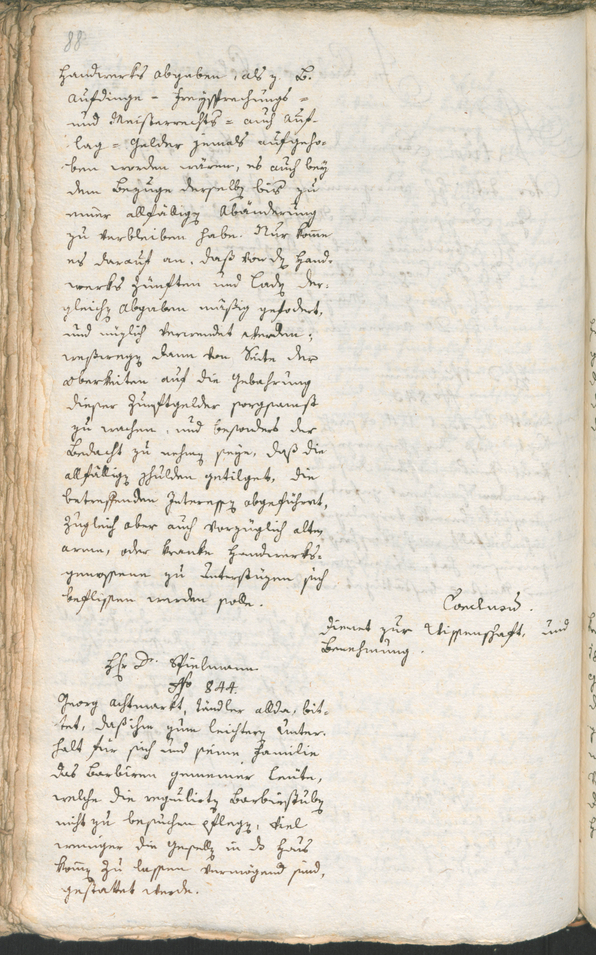 88
Handwerks abgaben, als z. B.
Aufdinge- Freysprechungs-
und Meisterrechts- auch Auf-
lag-Gelder jemals aufgeho-
ben worden wären, es auch bey
dem Bezuge derselben bis zu
einer allfälligen Abänderung
zu verbleiben habe. Nur komme
es darauf an, daß von den Hand-
werks Zünften und Laden der-
gleichen Abgaben mäßig gefodert,
und nüzlich verwendet werden;
weßwegen dann von Seite der
Oberkeiten auf die Gebahrung
dieser Zunftgelder sorgsamst
zu wachen, und besonders der
Bedacht zu nehmen seye, daß die
allfälligen Schulden getilget, die
betreffenden Interessen abgeführet,
zugleich aber auch vorzüglich alte,
arme, oder kranke Handwerks-
genossene zu unterstüzen sich
beflissen werden solle.
Conclusum.
Dienet zur Wissenschaft, und
Benehmung.
H. Dr. Spielmann
No 844.
Georg Achtmarkt, Tändler allda, bit-
tet, daß ihm zum leichtern Unter-
halt für sich und seine Familie
das Barbiren gemeiner Leute,
welche die regulirten Barbirstuben
nicht zu besuchen pflegen, viel
weniger die Gesellen in das Haus
kommen zu lassen vermögend sind,
gestattet werde.